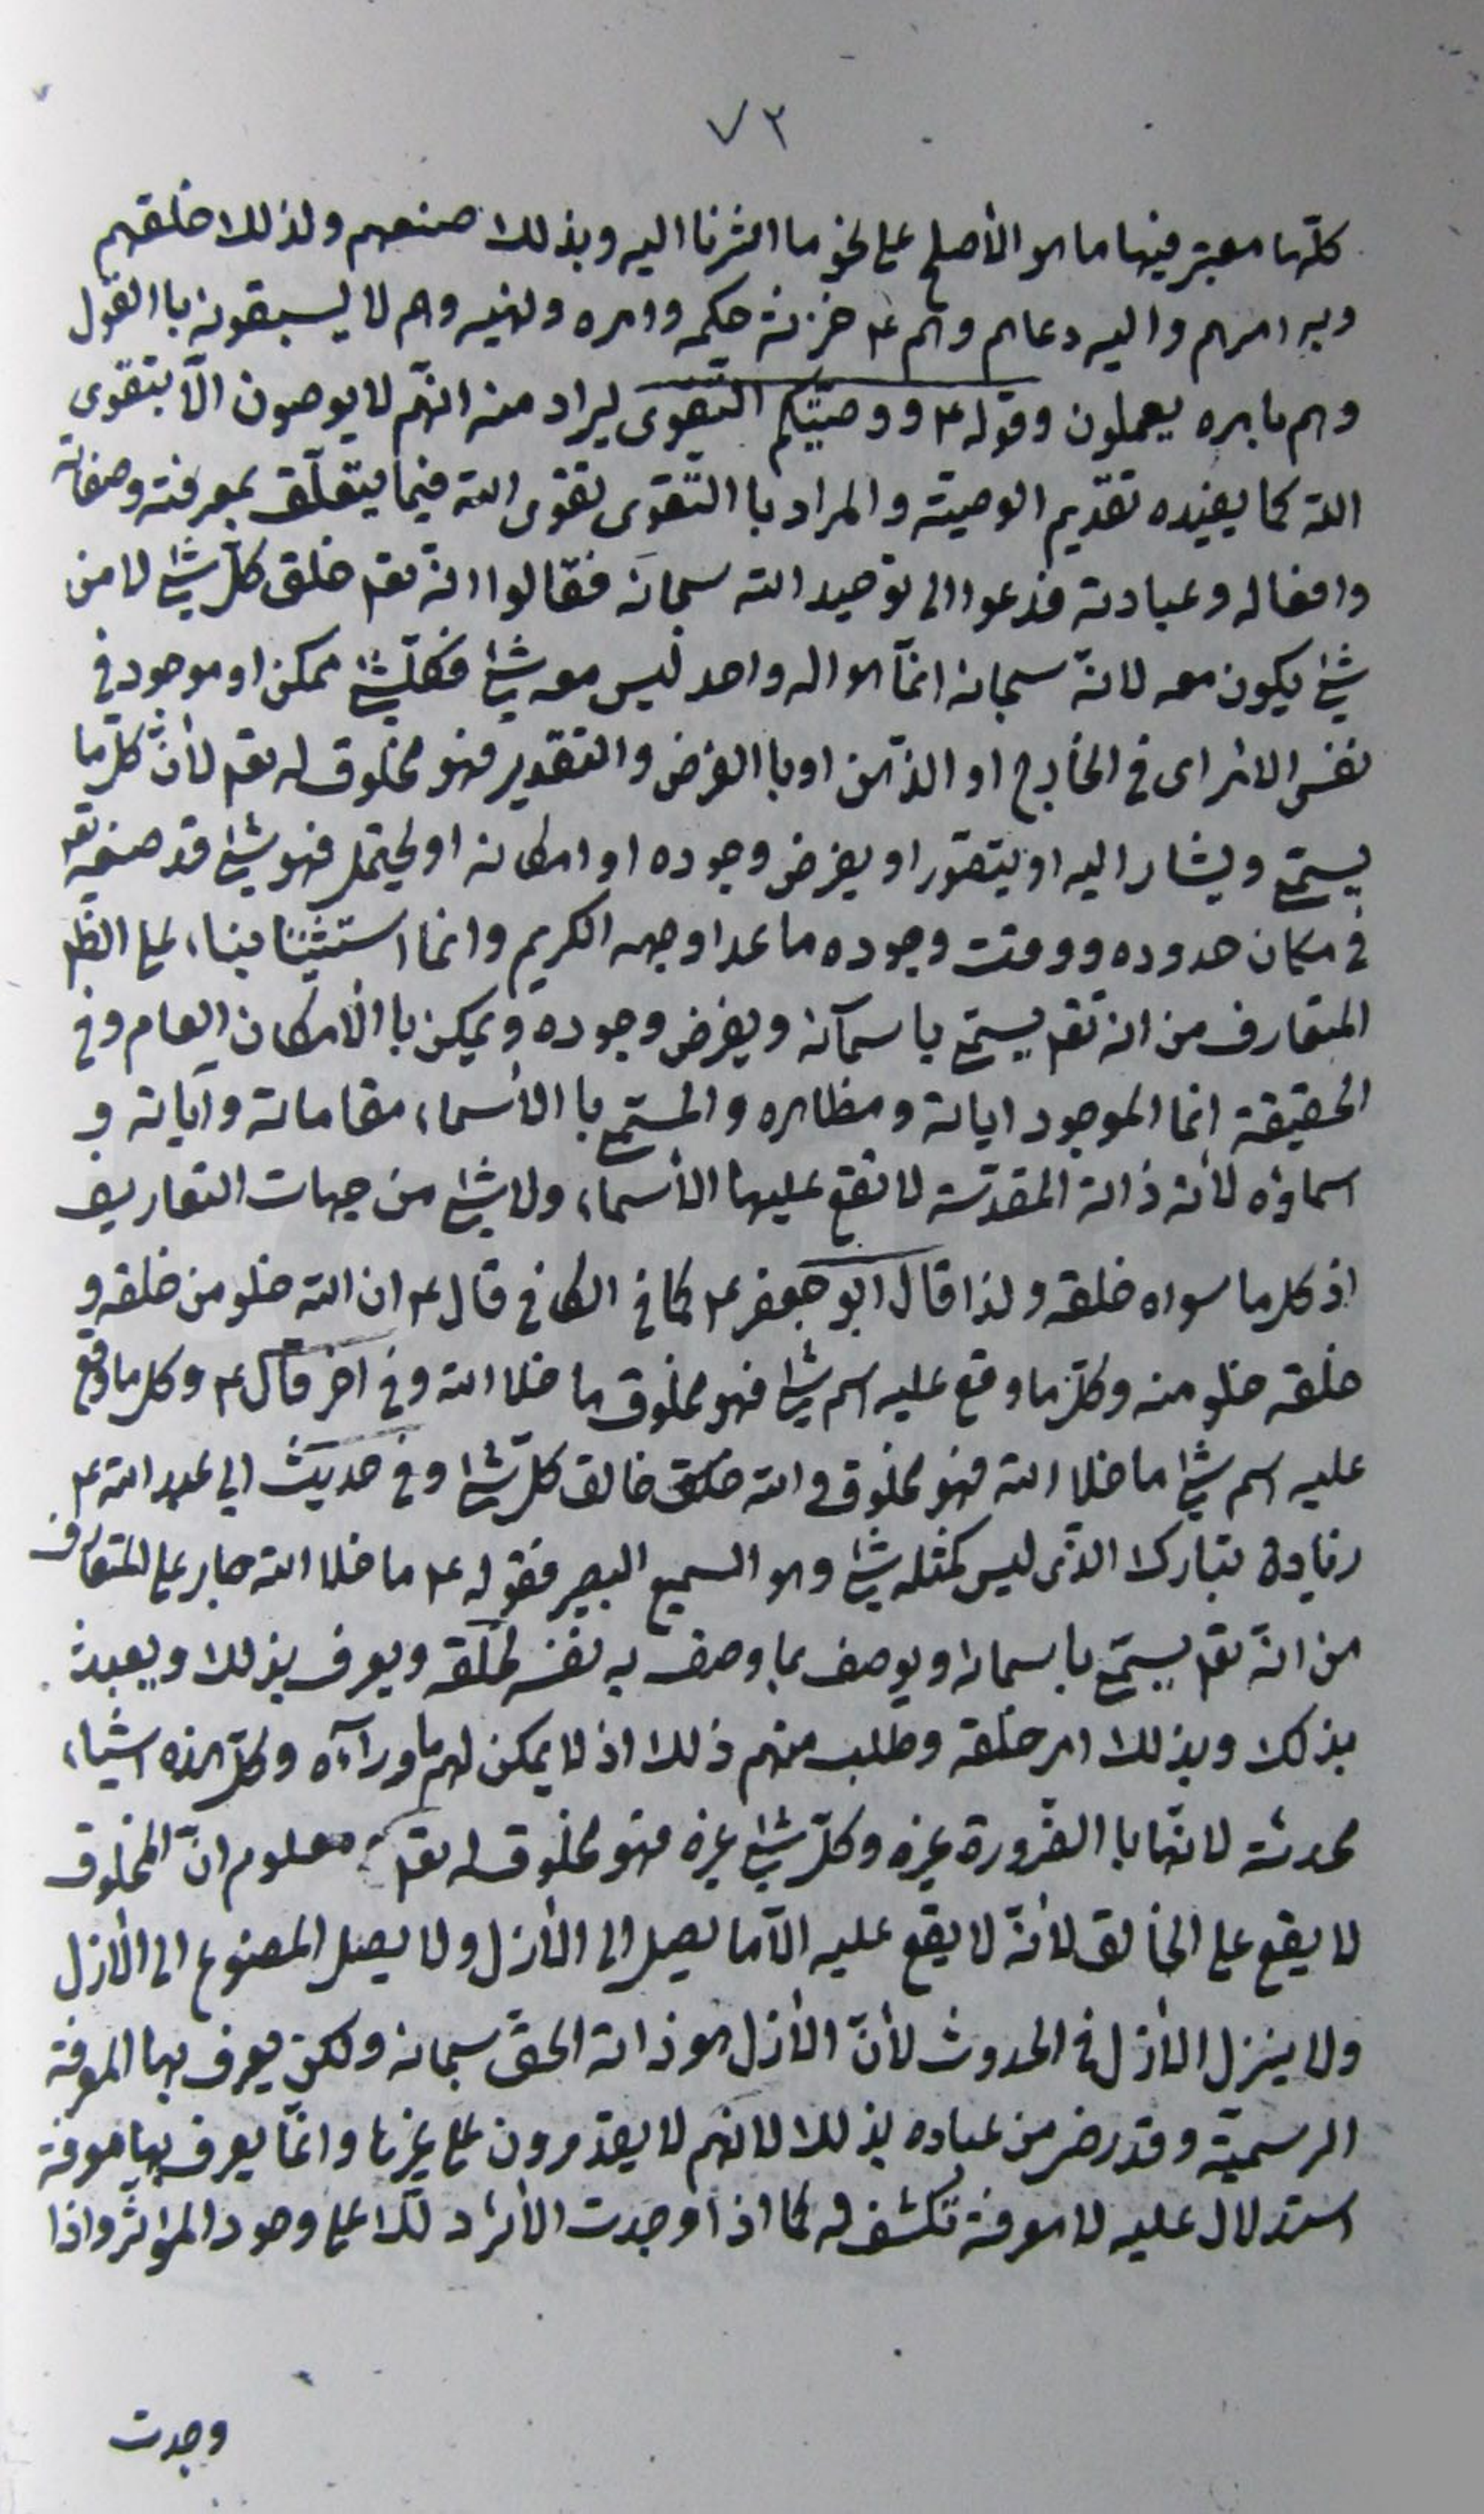 ٧٢
كلّها معتبر فيها ما هو الأصلح على نحو ما اشرنا اليه وبذلك صنعهم ولذلك خلقهم
وبه امرهم واليه دعاهم وهم ع خزنة حكمه وامره ونهيه وهم لا يسبقونه باالقول
وهم بامره يعملون وقوله ع ووصيّتكم التّقوى يراد منه انّهم لا يوصون الّا بتقوى
الله كما يفيده تقديم الوصيّة والمراد باالتّقوى تقوى الله فيما يتعلّق بمعرفته وصفاته
وافعاله وعبادته فدعوا الى توحيد الله سبحانه فقالوا انّه تعم خلق كلّ شئ لا من
شئ يكون معه لانّه سبحانه انمّا هو اله واحد ليس معه شئ فكلّ شئ ممكن او موجود في
نفس الامر اى في الخارج او الذّهن او باالفرض والتقدير فهو مخلوق له تعم لأنّ كلّ ما
يسمّى ويشار اليه او يتصّور او يفرض وجوده او امكانه او يحتمل فهو شئ قد صنعه تعم
في مكان حدوده ووقت وجوده ما عدا وجهه الكريم وانما استثنينا بناء على الظم
المتعارف من انه تعم يسمّى باسمآئه ويفرض وجوده ويمكن باالأمكان العام وفي
الحقيقة انما الموجود اياته ومظاهره والمسمّى باالأسماء مقاماته وآياته و
اسماؤه لأنه ذاته المقدسّة لا تقع عليها الأسماء ولا شئ من جهات التعاريف
اذ كل ما سواه خلقه ولذا قال ابو جعفر ع كما في الكافي قال ع ان الله خلو من خلقه و
خلقه خلو منه وكلّ ما وقع عليه اسم شئ فهو مخلوق ما خلا الله وفي اخر قال ع وكل ما وقع
عليه اسم شئ ما خلا الله فهو مخلوق والله خالق كلّ شئ وفي حديث ابي عبد الله ع
زيادة تبارك الذّى ليس كمثله شئ وهو السميع البصير فقوله ع ما خلا الله جار على المتعارف
من انّه تعم يسمّى باسمائه ويوصف بما وصف به نفسه لخلقه ويعرف بذلك ويعبد
بذلك وبذلك امر خلقه وطلب منهم ذلك اذ لا يمكن لهم ما ورآءه وكلّ هذه اشياء
محدثة لانّها باالضّرورة غيره وكلّ شئ غيره فهو مخلوق له تعم ومعلوم انّ المخلوق
لا يقع على الخالق لأنّه لا يقع عليه الّا ما يصل الى الأزل ولا يصل المصنوع الى الأزل
ولا ينزل الأزل في الحدوث لأنّ الأزل هو ذاته الحقّ سبحانه ولكن يعرف بها المعرفة
الرسميّة وقد رضى من عباده بذلك لانهم لا يقدرون على غيرها وانمّا يعرف بها معرفة
استدلال عليه لا معرفة تكشف له كما اذا وجدت الأثر دلّك على وجود المؤثر واذا
وجدت